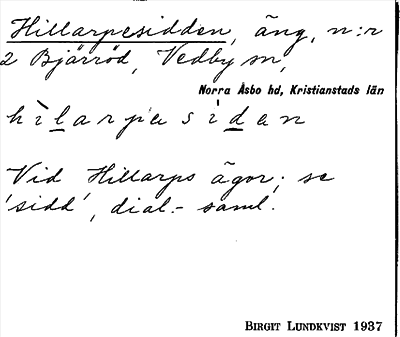 Hillarpesidden, äng, n:r
2 Bjärröd, Vedby sn,
Norra Åsbo hd, Kristianstads län
hìlarpasìdan
Vid Hillarps ägor; se
'sidd', dial.- saml.
BIRGIT LUNDKVIST 1937